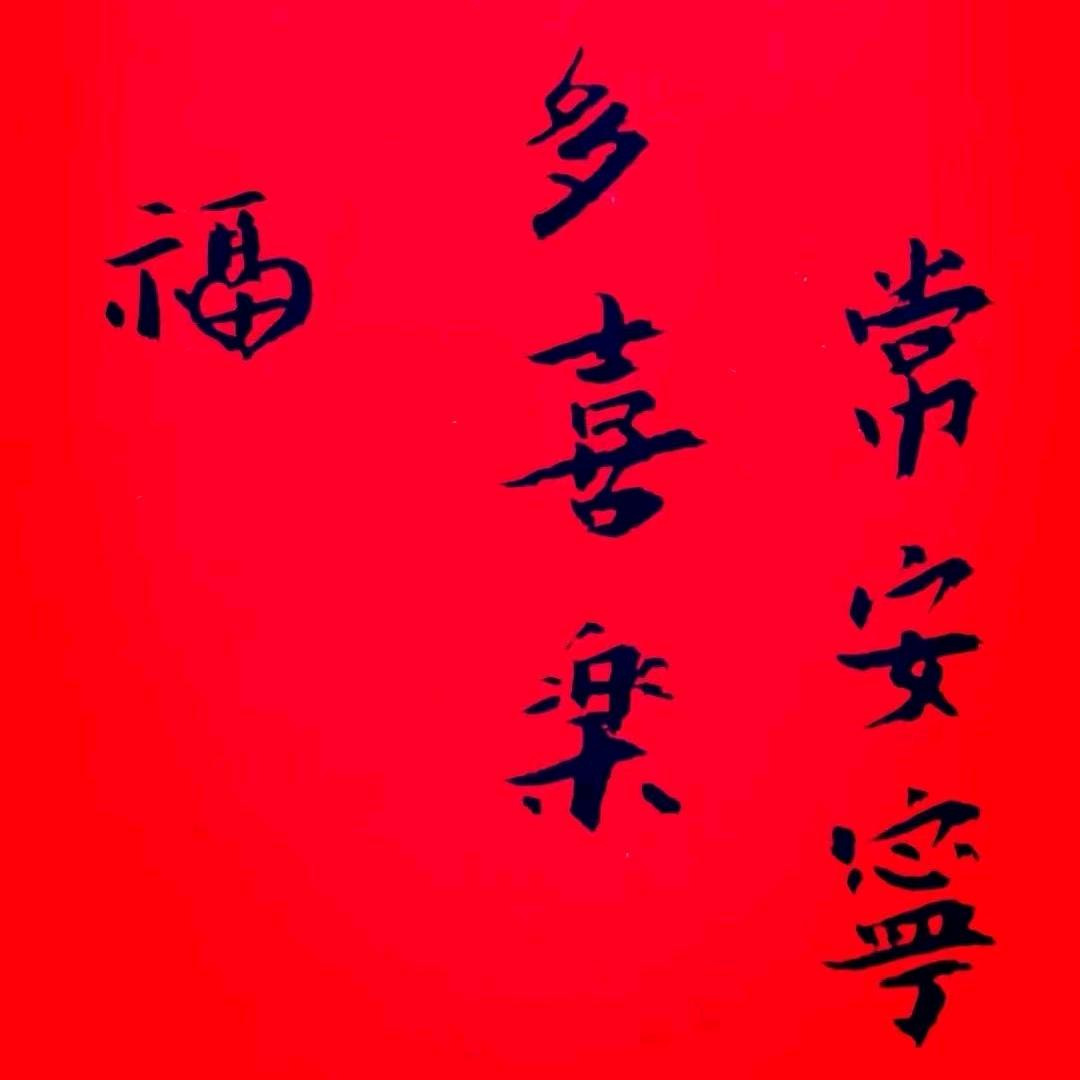 常安寧
多喜楽
福